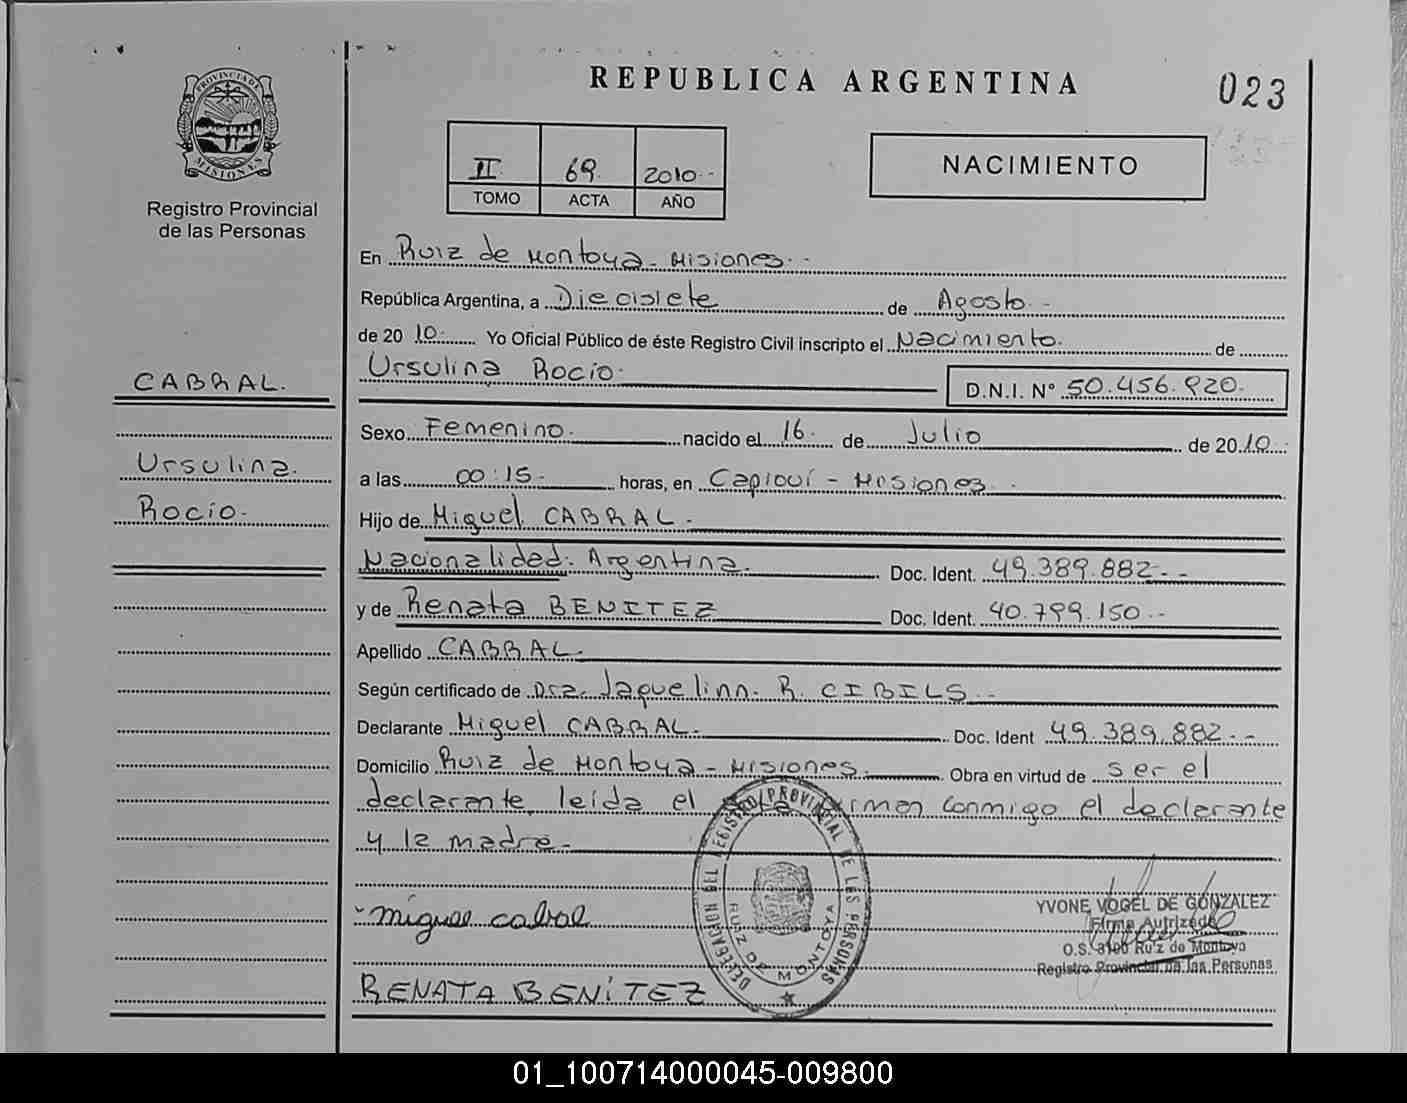 REPUBLICA ARGENTINA
023
PROVINCIA DE MISIONES
Registro Provincial
de las Personas
II 69. 2010.-
TOMO ACTA AÑO
NACIMIENTO
En Ruiz de Montoya - Misiones.-
República Argentina, a Diecisiete de Agosto.-
de 20 10.- Yo Oficial Público de éste Registro Civil inscripto el Nacimiento. de
Ursulina Rocio.
D.N.I. N° 50.456.920.-
CABRAL.
Ursulina.
Rocio.
Sexo Femenino. nacido el 16. de Julio de 20 10.
a las 00:15.- horas, en Capioví - Misiones.-
Hijo de Miguel CABRAL.
Nacionalidad: Argentina. Doc. Ident. 49.389.882.-
y de Renata BENITEZ Doc. Ident. 40.799.150.-
Apellido CABRAL.
Según certificado de Dra. Jaquelinn. R. CIBILS.-
Declarante Miguel CABRAL. Doc. Ident 49.389.882.-
Domicilio Ruiz de Montoya - Misiones. Obra en virtud de ser el
declarante, leída el firman conmigo el declarante
y la madre.
miguel cabral
RENATA BENíTEZ
DELEGACION DEL REGISTRO PROVINCIAL DE LAS PERSONAS
RUIZ DE MONTOYA
YVONE VOGEL DE GONZALEZ
Firma Autrizada
O.S. 3100 Ruiz de Montoya
Registro Provincial de las Personas
01_100714000045-009800